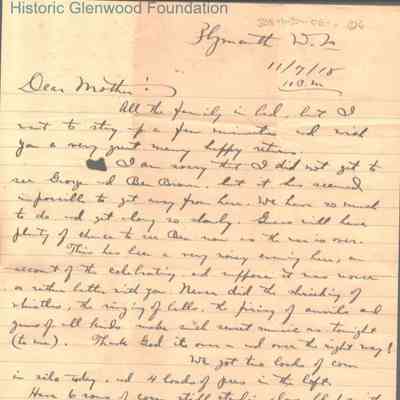 Historic Glenwood Foundation
Plymouth W. Va
11/7/18
11 P.M
Dear Mother:
All the family in bed, but I
want to stay up a few minutes and wish
you a very great many happy returns.
I am sorry that I did not get to
see George and Ben Brown, but it has seemed
impossible to get away from here. We have so much
to do and get along so slowly. Guess will have
plenty of chance to see Ben now as the war is over.
This has been a very noisy evening here, on
account of the celebrating, and suppose it was worse
or rather better with you. Never did the shrieking of
whistles, the ringing of bells, the firing of anvils and
guns of all kinds make such sweet music as tonight
(to me). Thank God its over and over the right way!
We got two loads of corn
in silo today, and 4 loads of peas in the loft.
Have 6 rows of corn still